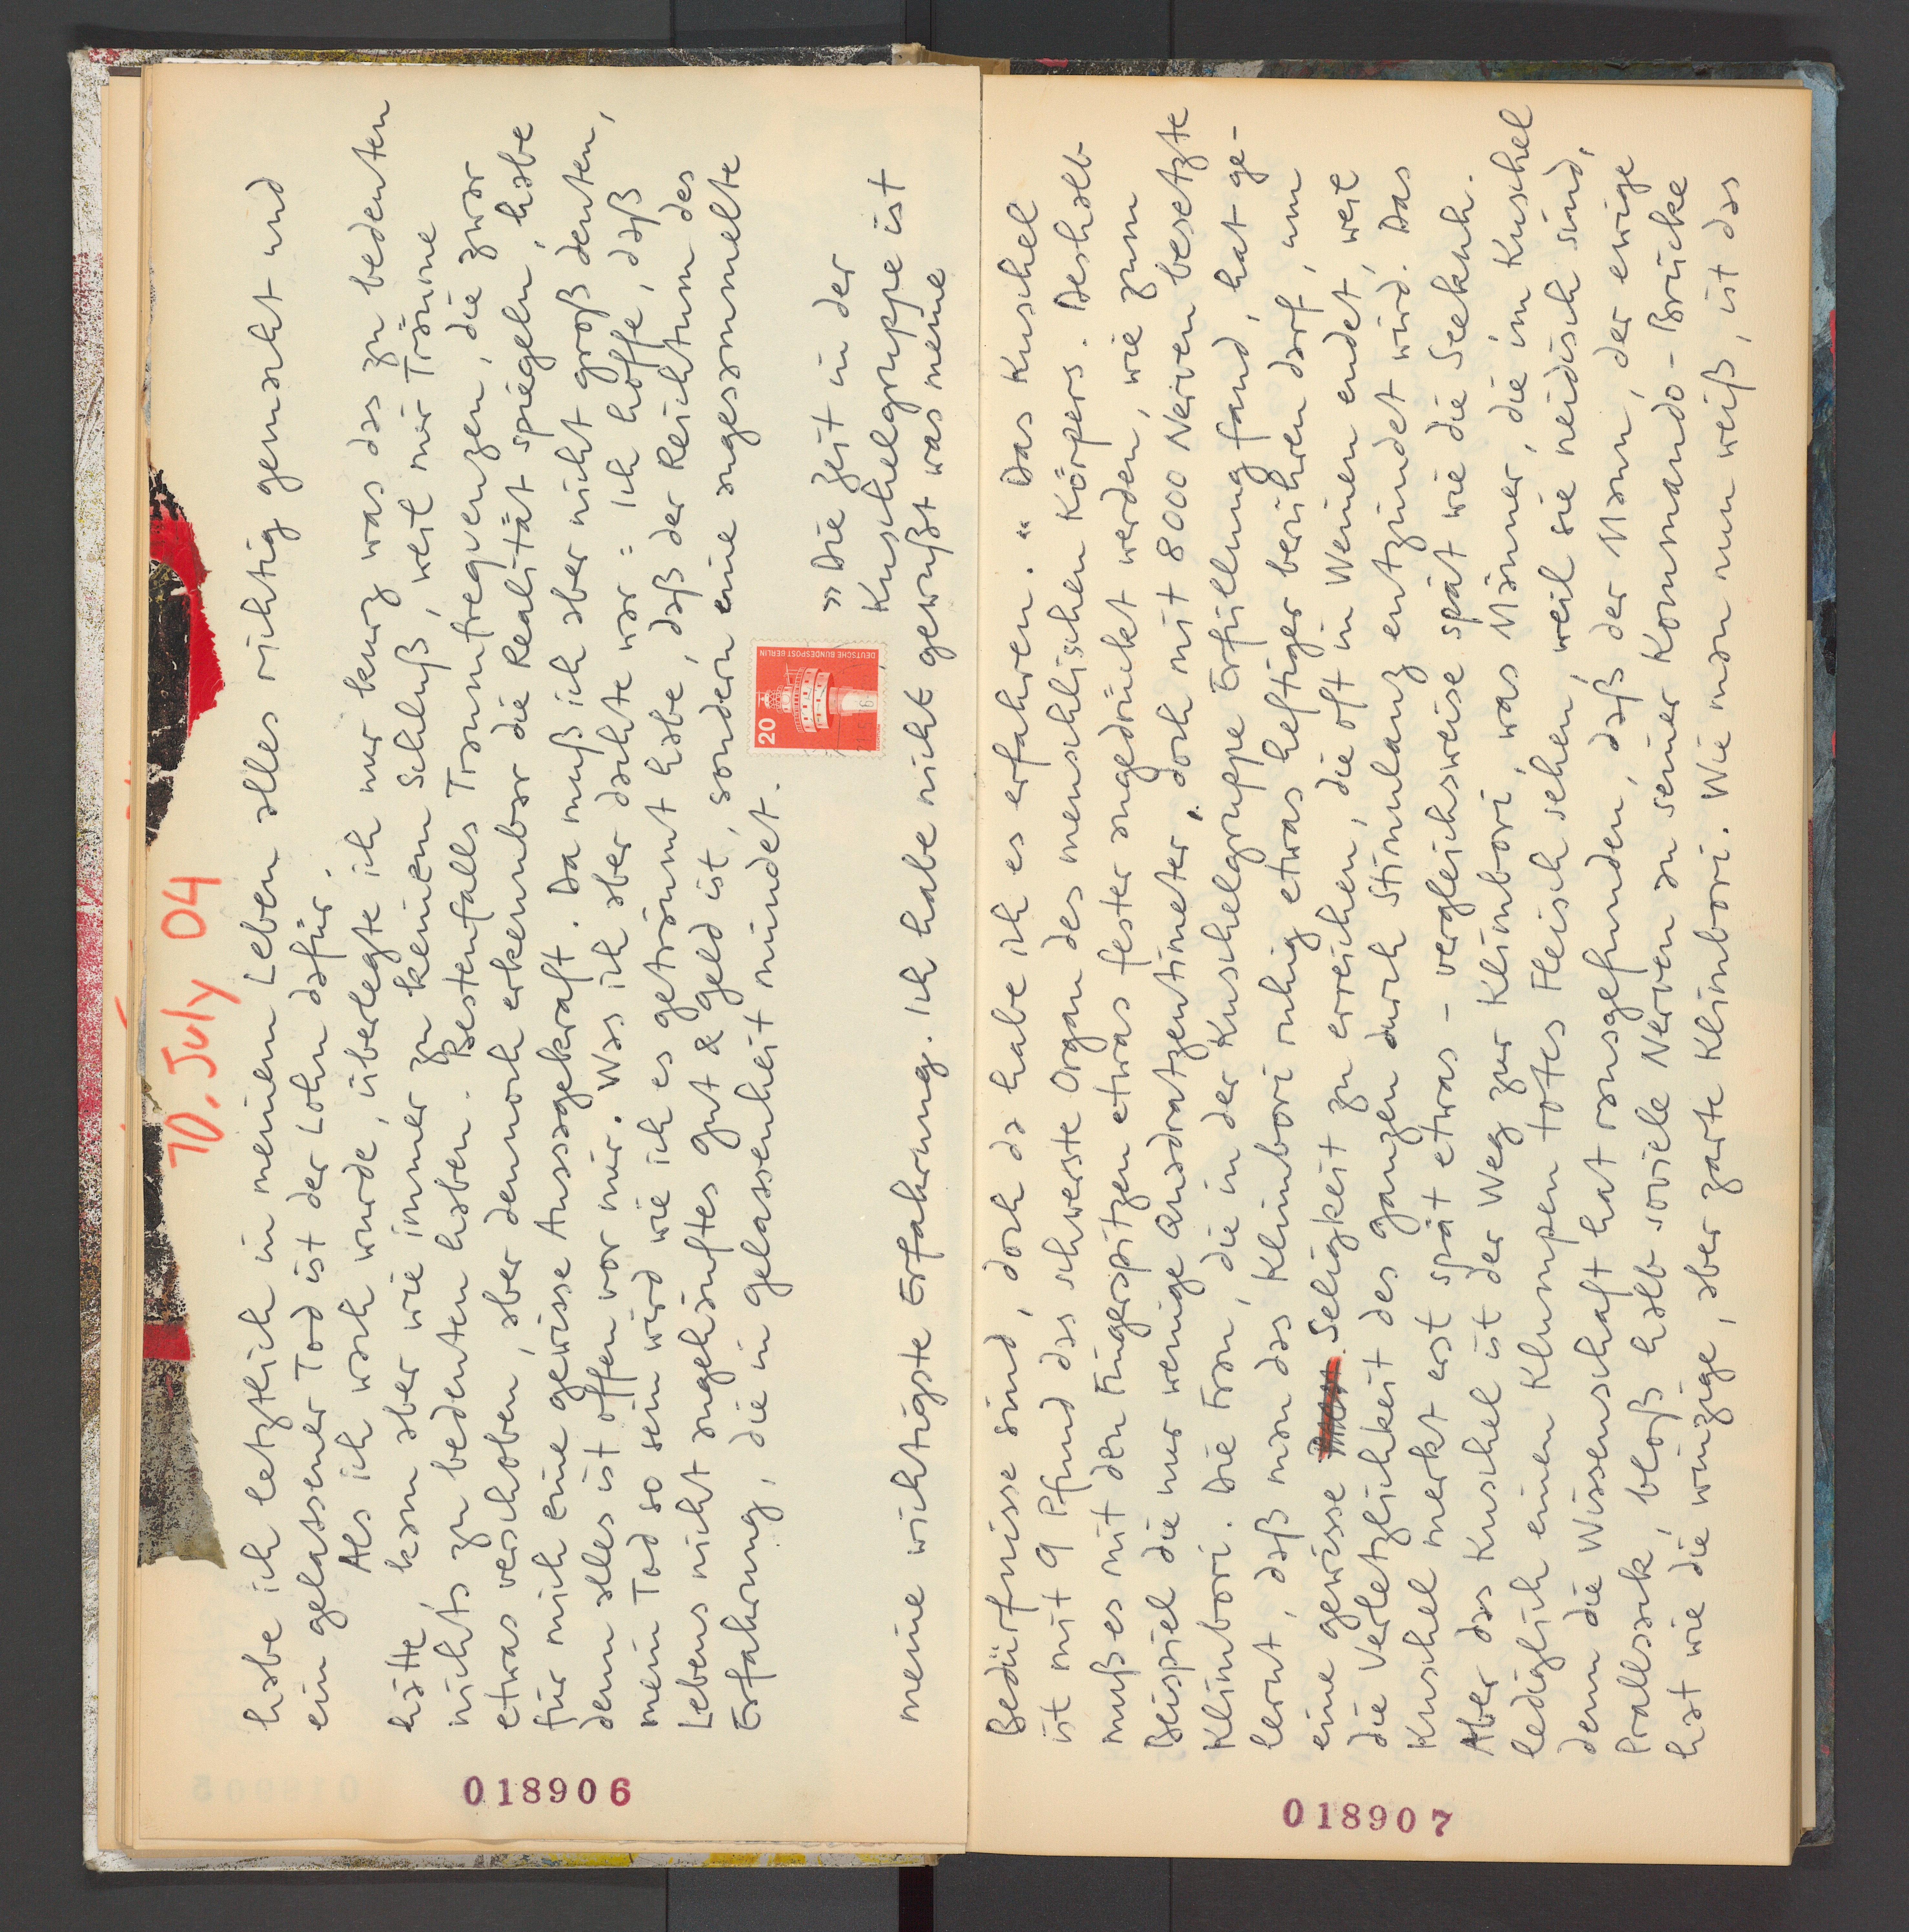 10. July 04
habe ich letztlich in meinem Leben alles richtig gemacht und
ein gelassener Tod ist der Lohn dafür.
Als ich wach wurde, überlegte ich nur kurz was das zu bedeuten
hätte, kam aber wie immer zu keinem Schluß, weil mir Träume
nichts zu bedeuten haben. Bestenfalls Traumfrequenzen, die zwar
etwas verschoben, aber dennoch erkennbar die Realität spiegeln, habe
für mich eine gewisse Aussagekraft. Da muß ich aber nicht groß deuten,
denn alles ist offen vor mir. Was ich aber dachte war: Ich hoffe, daß
mein Tod so sein wird wie ich es geträumt habe, daß der Reichtum des
Lebens nicht angehäuftes Gut & Geld ist, sondern eine angesammelte
Erfahrung, die in Gelassenheit mündet.
20
DEUTSCHE BUNDESPOST BERLIN
»Die Zeit in der
Kuschelgruppe ist
meine wichtigste Erfahrung. Ich habe nicht gewußt was meine
018906
Bedürfnisse sind, doch da habe ich es erfahren.« Das Kuschel
ist mit 9 Pfund das schwerste Organ des menschlischen Körpers. Deshalb
muß es mit den Fingerspitzen etwas fester angedrückt werden, wie zum
Beispiel die nur wenige Quadratzentimeter, doch mit 8000 Nerven besetzte
Klimbori. Die Frau, die in der Kuschelgruppe Erfüllung fand, hat ge-
lernt, daß man das Klimbori ruhig etwas heftiger berühren darf, um
eine gewisse Seligkeit zu erreichen, die oft in Weinen endet, weil
die Verletzlichkeit des ganzen durch Stimulanz entzündet wird. Das
Kuschel merkt erst spät etwas – vergleichsweise spät wie die Seekuh.
Aber das Kuschel ist der Weg zur Klimbori, was Männer, die im Kuschel
lediglich einen Klumpen totes Fleisch sehen, weil sie neidisch sind,
denn die Wissenschaft hat rausgefunden, daß der Mann, der ewige
Prallsack, bloß halb soviele Nerven an seiner Kommando-Brücke
hat wie die winzige, aber zarte Klimbori. Wie man nun weiß, ist das
018907